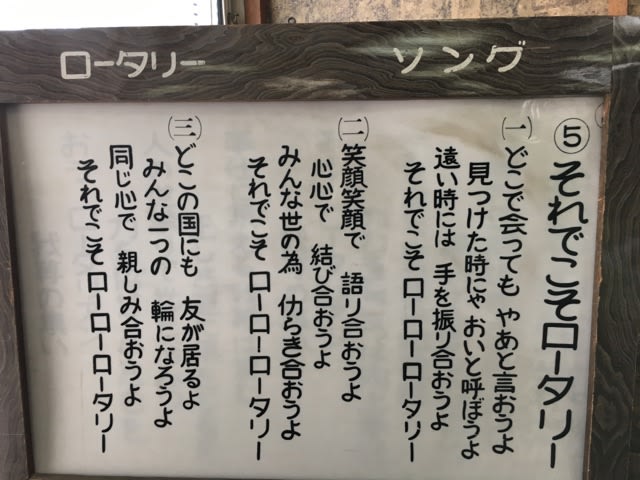 ロータリー ソング
⑤ それでこそロータリー
㈠ どこで会っても やあと言おうよ
見つけた時にゃ おいと呼ぼうよ
遠い時には 手を振り合おうよ
それでこそ ローローロータリー
㈡ 笑顔笑顔で 語り合おうよ
心心で 結び合おうよ
みんな世の為 仂らき合おうよ
それでこそ ローローロータリー
㈢ どこの国にも 友が居るよ
みんな一つの 輪になろうよ
同じ心で 親しみ合おうよ
それでこそ ローローロータリー